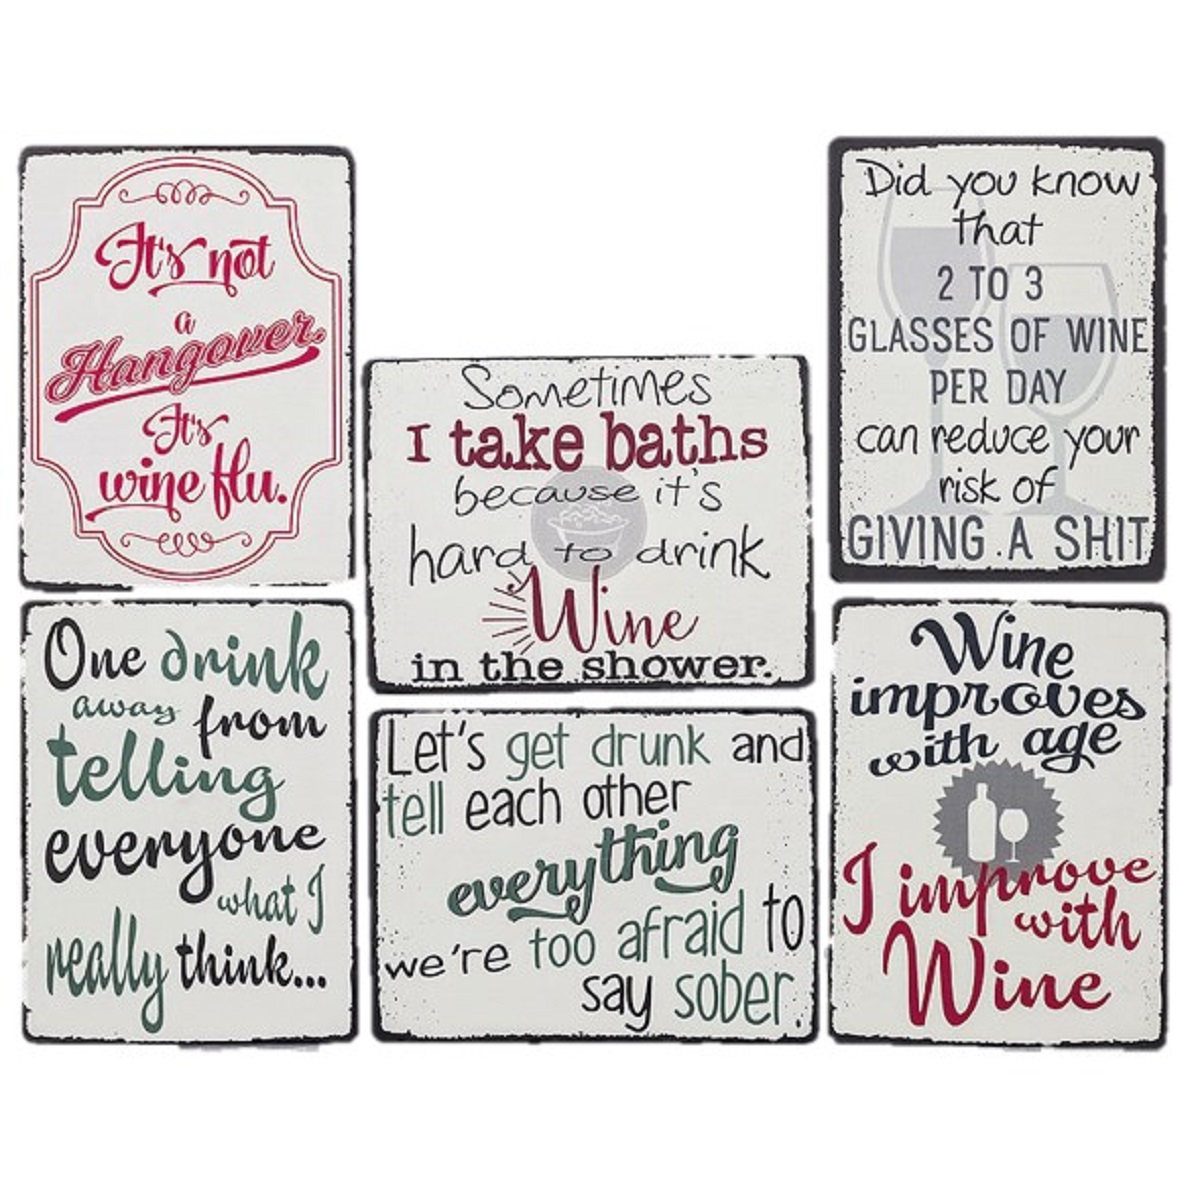 It's not
a
Hangover.
It's
wine flu.
Sometimes
I take baths
because it's
hard to drink
Wine
in the shower.
Did you know
that
2 TO 3
GLASSES OF WINE
PER DAY
can reduce your
risk of
GIVING A SHIT
One drink
away from
telling
everyone
what I
really think...
Let's get drunk and
tell each other
everything
we're too afraid to
say sober.
Wine
improves
with age
I improve
with
Wine